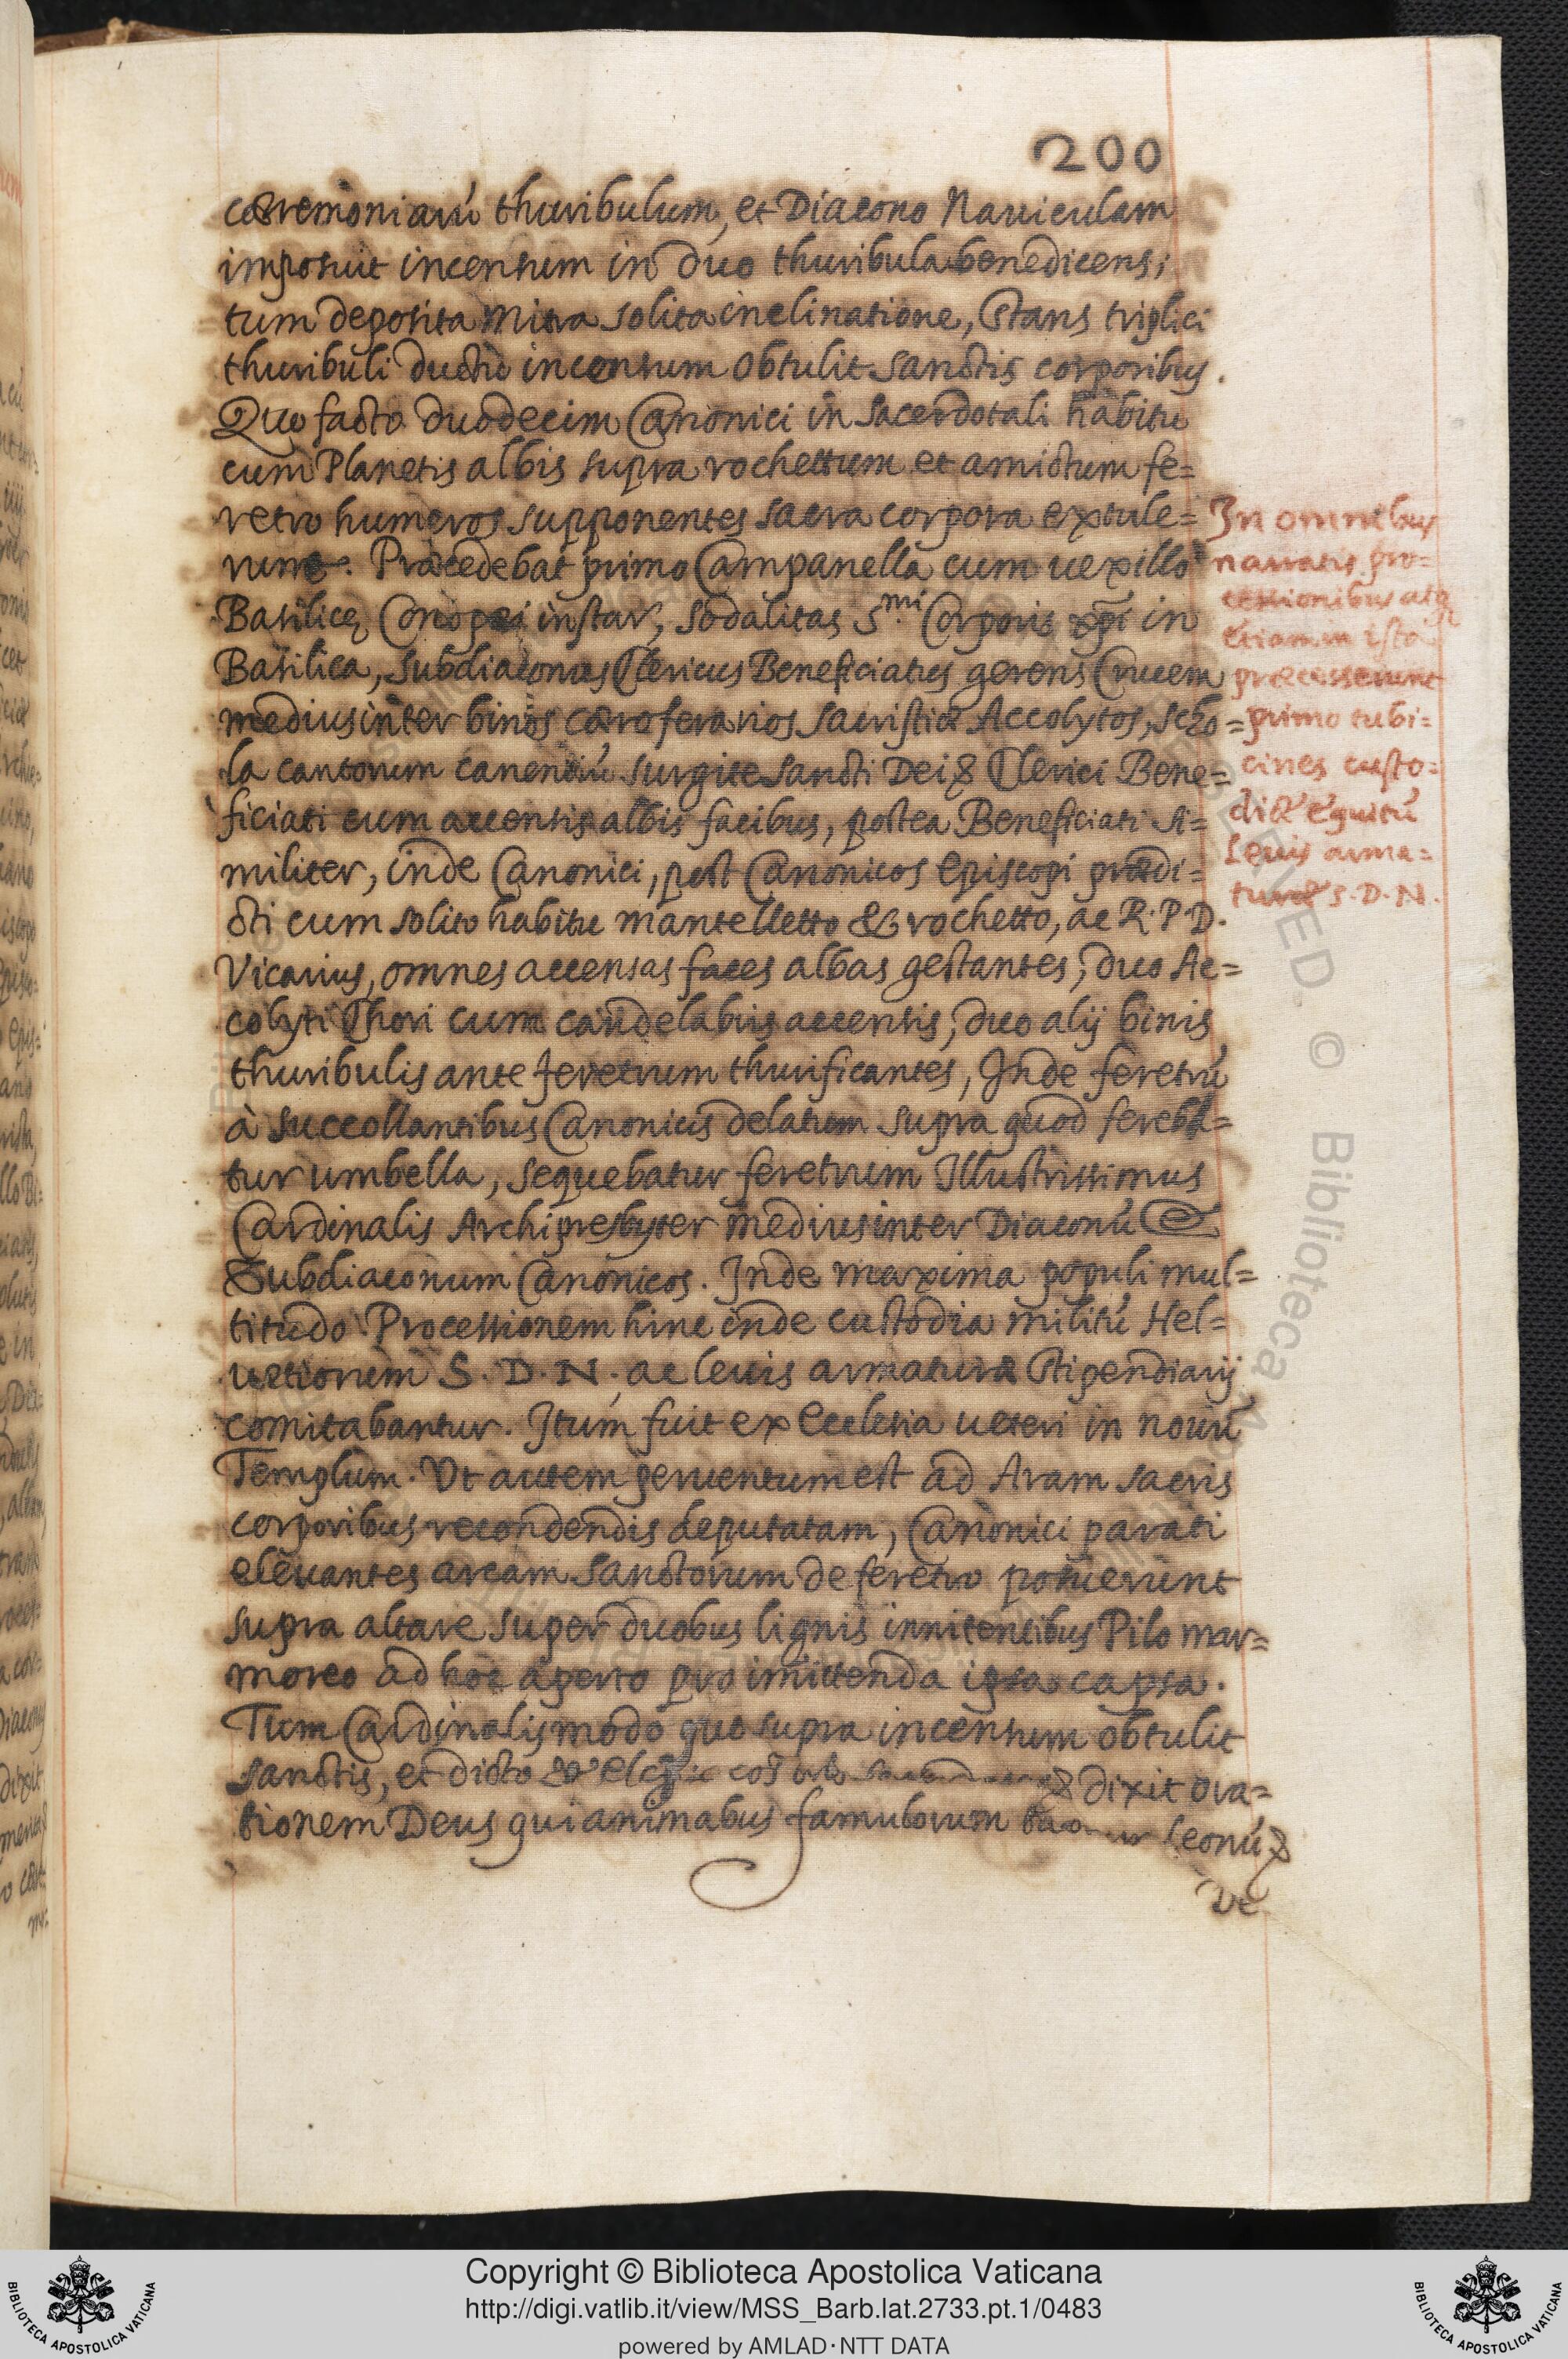 200
cæremoniarũ thuribulum, et Diacono Nauiculam
imposuit incensum in duo thuribula benedicens;
tum deposita Mitra solita inclinatione, Stans triplici
thuribuli ductu incensum obtulit sanctis corporibus.
Quo facto duodecim Canonici in sacerdotali habitu
cum Planetis albis supra rochettum et amictum fe=
retro humeros supponentes sacra corpora extule=
runt. Præcedebat primo Campanella cum uexillo
Basilicę Conopei instar, Sodalitas S.mi Corporis xp̃i in
Basilica, Subdiaconus Clericus Beneficiatus gerens Crucem
medius inter binos cæroferarios sacristiæ Accolytos, scho=
la cantorum canentiũ surgite sancti Dei & Clerici Bene=
ficiati cum accensis albis facibus, postea Beneficiati si=
militer, inde Canonici, post Canonicos Episcopi prædi=
cti cum solito habitu mantelletto & rochetto, ac R. P. D.
Vicarius, omnes accensas faces albas gestantes; duo Ac=
colyti Chori cum candelabris accensis, duo alij binis
thuribulis ante feretrum thurificantes, Inde feretrũ
à succollantibus Canonicis delatum supra quod fereba=
tur umbella, sequebatur feretrum Illustrissimus
Cardinalis Archipresbyter medius inter Diaconũ &
Subdiaconum Canonicos. Inde maxima populi mul=
titudo. Processionem hinc inde custodia militũ Hel=
uetiorum S. D. N., ac leuis armaturæ Stipendiarij
comitabantur. Itum fuit ex Ecclesia ueteri in nouũ
Templum. Vt autem peruentum est ad Aram sacris
corporibus recondendis deputatam, Canonici parati
eleuantes arcam Sanctorum de feretro posuerunt
supra altare super duobus lignis innitentibus Pilo mar=
moreo ad hoc aperto pro imittenda ipsa capsa.
Tum Cardinalis modo quo supra incensum obtulit
sanctis, et dicto & dixit ora=
tionem Deus qui animabus famulorum Leonũ &
Ve
In omnibus
narratis pro=
cessionibus atq
etiam in ista
præcesserunt
primo tubi=
cines custo=
diæ equitũ
leuis arma=
turæ S. D. N.
Copyright © Biblioteca Apostolica Vaticana
http://digi.vatlib.it/view/MSS_Barb.lat.2733.pt.1/0483
powered by AMLAD·NTT DATA
BIBLIOTECA APOSTOLICA VATICANA
BIBLIOTECA APOSTOLICA VATICANA